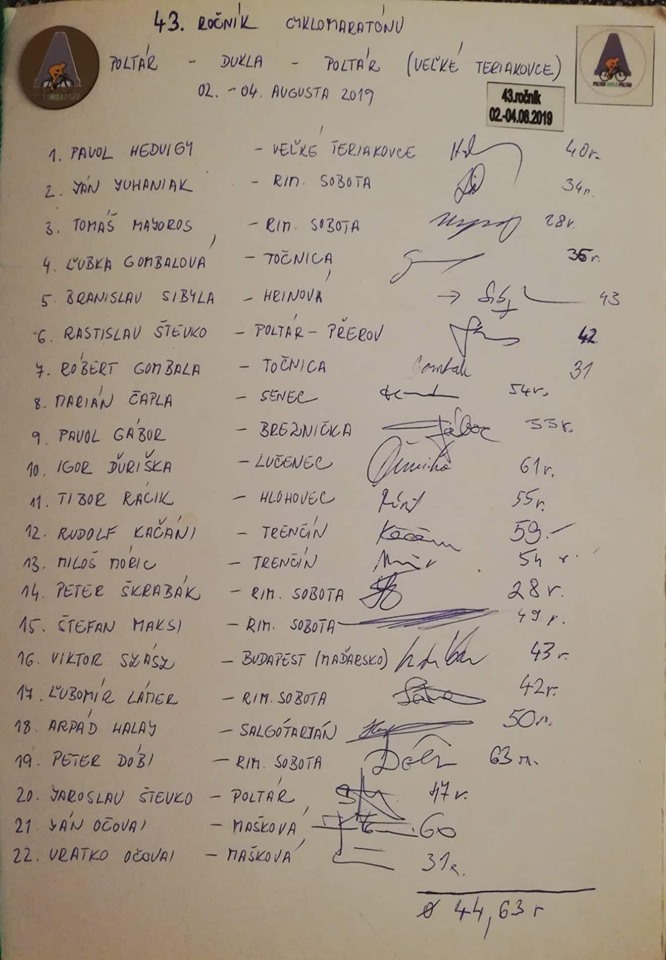 43. ROČNÍK CYKLOMARATÓNU
POLTÁR - DUKLA - POLTÁR (VEĽKÉ TERIAKOVCE)
02. - 04. AUGUSTA 2019
43.ročník
02.-04.08.2019
1. PAVOL HEDVIGY - VEĽKÉ TERIAKOVCE 40r.
2. JÁN JUHANIAK - RIM. SOBOTA 34r.
3. TOMÁŠ MAJOROS - RIM. SOBOTA 28r.
4. ĽUBKA GOMBALOVÁ - TOČNICA 35r.
5. BRANISLAV SIBYLA - HRIŇOVÁ → 43
6. RASTISLAV ŠTEVKO - POLTÁR - PŘEROV 42
7. RÓBERT GOMBALA - TOČNICA Gombala 31
8. MARIÁN ČAPLA - SENEC 54r.
9. PAVOL GÁBOR - BREZNIČKA Gábor 33r.
10. IGOR ĎURIŠKA - LUČENEC Ďuriška 61r.
11. TIBOR RÁCIK - HLOHOVEC 55r.
12. RUDOLF KAČÁNI - TRENČÍN 59.-
13. MILOŠ MÓRIC - TRENČÍN 54 r.
14. PETER ŠKRABÁK - RIM. SOBOTA 28r.
15. ŠTEFAN MAKSI - RIM. SOBOTA 49r.
16. VIKTOR SZÁSZ - BUDAPEST (MAĎARSKO) 43r.
17. ĽUBOMÍR LÁMER - RIM. SOBOTA 42r.
18. ARPÁD HALAJ - SALGÓTARJÁN 50r.
19. PETER DÓBI - RIM. SOBOTA Dóbi 63r.
20. JAROSLAV ŠTEVKO - POLTÁR 47r.
21. JÁN OČOVAI - MAŠKOVÁ 60
22. VRATKO OČOVAI - MAŠKOVÁ 31r.
Ø 44,63 r